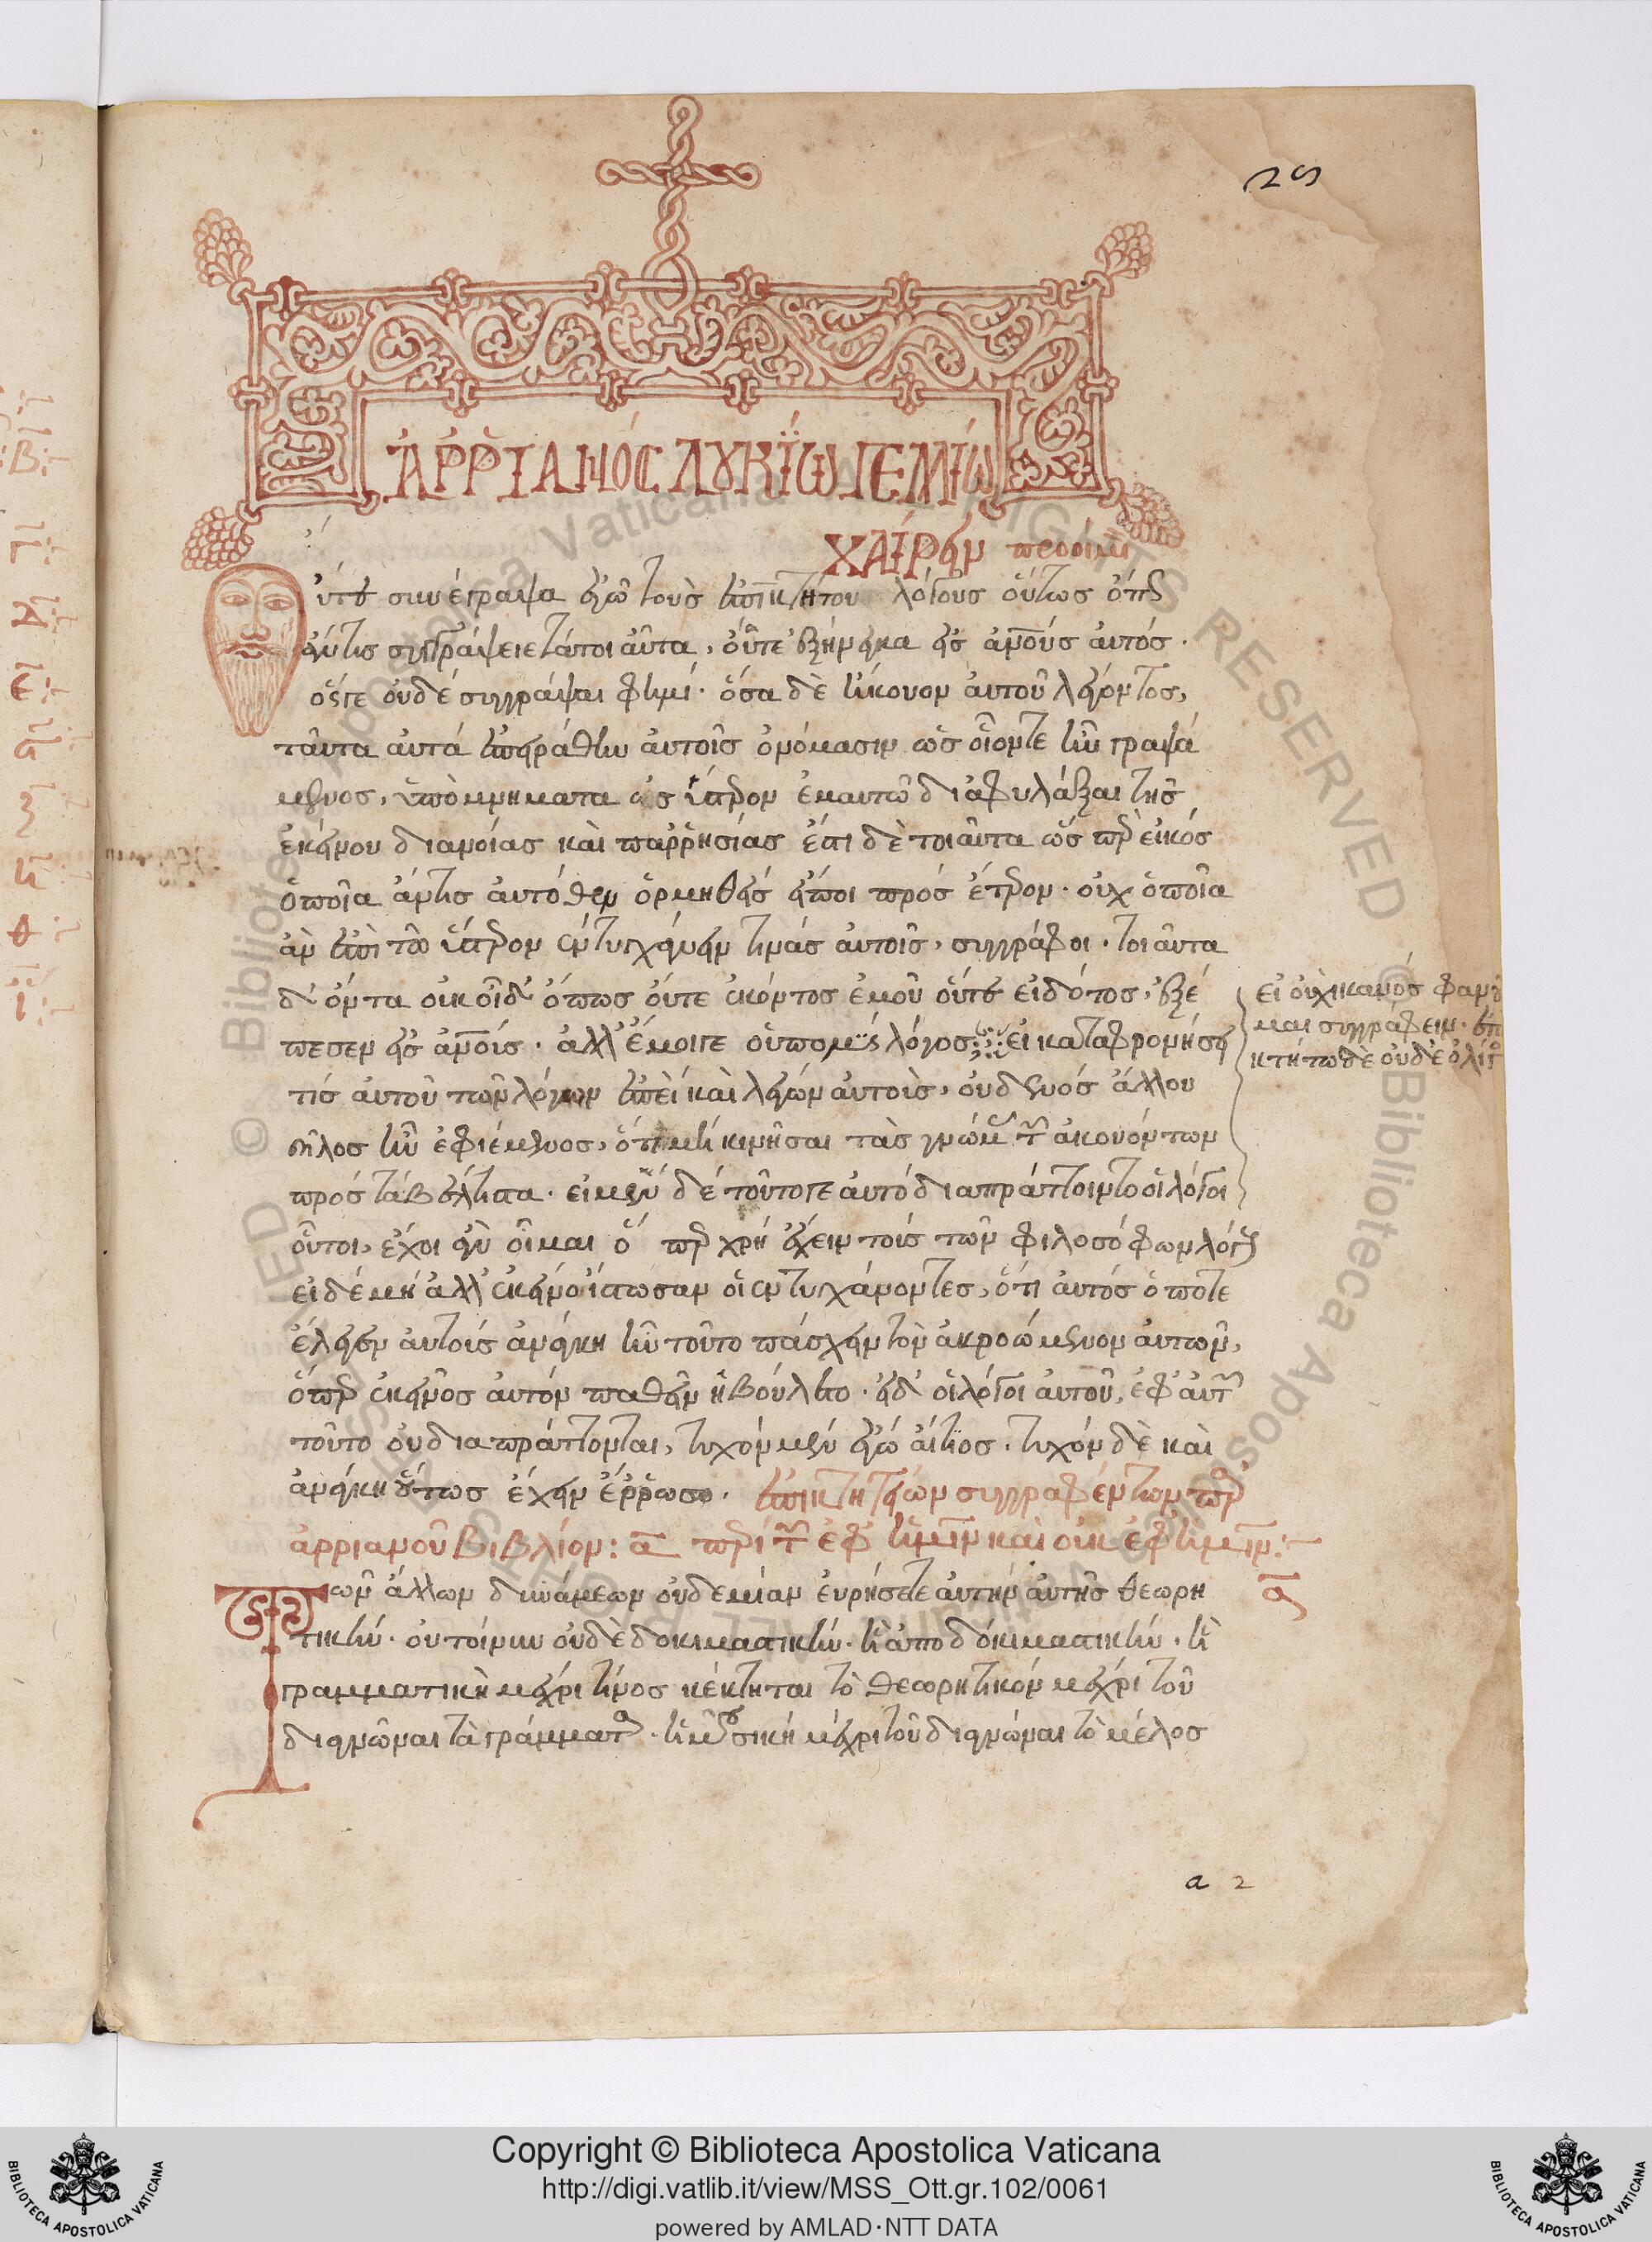 ἀρριανός λουκίω γελλίω
χαίρειν προοίμι
Οὔτε συνέγραψα ἐγὼ τοὺς ἐπικτήτου λόγους οὕτως ὅπως
ἄν τις συγγράψειε τὰ τοιαῦτα, οὔτε ἐξήνεγκα εἰς ἀνους αὐτός·
ὅς γε οὐδέ συγγράψαι φημί· ὅσα δὲ ἤκουον αὐτοῦ λέγοντος,
ταῦτα αὐτά ἐπειράθην αὐτοῖς ὀνόμασιν ὡς οἷόν τε ἦν γραψά
μενος, ὑπομνήματα εἰς ὕστερον ἐμαυτῷ διαφυλάξαι τῆς
ἐκείνου διανοίας καὶ παρρησίας ἔστι δὲ τοιαῦτα ὥσπερ εἰκός
ὁποῖα ἄν τις αὐτόθεν ὁρμηθείς εἴποι πρός ἕτερον· οὐχ ὁποῖα
ἂν ἐπὶ τῶ ὕστερον ἐντυγχάνειν τινάς αὐτοῖς, συγγράφοι· τοιαῦτα
δ' ὄντα οὐκ οἶδ' ὅπως οὔτε ἑκόντος ἐμοῦ οὔτε εἰδότος, ἐξέ
πεσεν εἰς ἀνοις· ἀλλ' ἔμοιγε οὐ πολύς λόγος εἰ καταφρονήσει
εἰ οὐχ ἱκανός φανοῦ
μαι συγγράφειν· ἐπι
κτήτω δὲ οὐδ' ὀλίγος
τις αὐτοῦ τῶν λόγων ἐπεί καὶ λέγων αὐτοὺς, οὐδενός ἄλλου
δῆλος ἦν ἐφιέμενος, ὅτι μή κινῆσαι τὰς γνώμας τῶν ἀκουόντων
πρός τὰ βέλτιστα· εἰ μέν δέ τοῦτό γε αὐτό διαπράττοιντο οἱ λόγοι
οὗτοι, ἔχοι ἂν οἶμαι ὅπερ χρή ἔχειν τούς τῶν φιλοσόφων λόγους
εἰ δέ μή ἀλλ' ἐκεῖνο ἴστωσαν οἱ ἐντυγχάνοντες, ὅτι αὐτός ὁπότε
ἔλεγεν αὐτούς ἀνάγκη ἦν τοῦτο πάσχειν τὸν ἀκροώμενον αὐτῶν,
ὅπερ ἐκεῖνος αὐτόν παθεῖν ἠβούλετο· εἰ δ' οἱ λόγοι αὐτοῦ, ἐφ' αὑτῶν
τοῦτο οὐ διαπράττονται, τυχόν μέν ἐγώ αἴτιος· τυχόν δὲ καὶ
ἀνάγκη οὕτως ἔχειν ἔρρωσο. ἐπικτητείων συγγραφέντων παρὰ
ἀρριανοῦ βιβλίον: α περί τῶν ἐφ' ἡμῖν καὶ οὐκ ἐφ' ἡμῖν:
Τῶν ἄλλων δυνάμεων οὐδεμίαν εὑρήσετε αὐτήν αὑτῆς θεωρη
α
τικήν· οὐ τοίνυν οὐδὲ δοκιμαστικήν· ἢ ἀποδοκιμαστικήν· ἡ
γραμματικὴ μέχρι τίνος κέκτηται τὸ θεωρητικόν μέχρι τοῦ
διαγνῶναι τὰ γράμματα· ἡ μουσική μέχρι τοῦ διαγνώναι τὸ μέλος
a 2
Copyright © Biblioteca Apostolica Vaticana
http://digi.vatlib.it/view/MSS_Ott.gr.102/0061
powered by AMLAD·NTT DATA
BIBLIOTECA APOSTOLICA VATICANA
BIBLIOTECA APOSTOLICA VATICANA